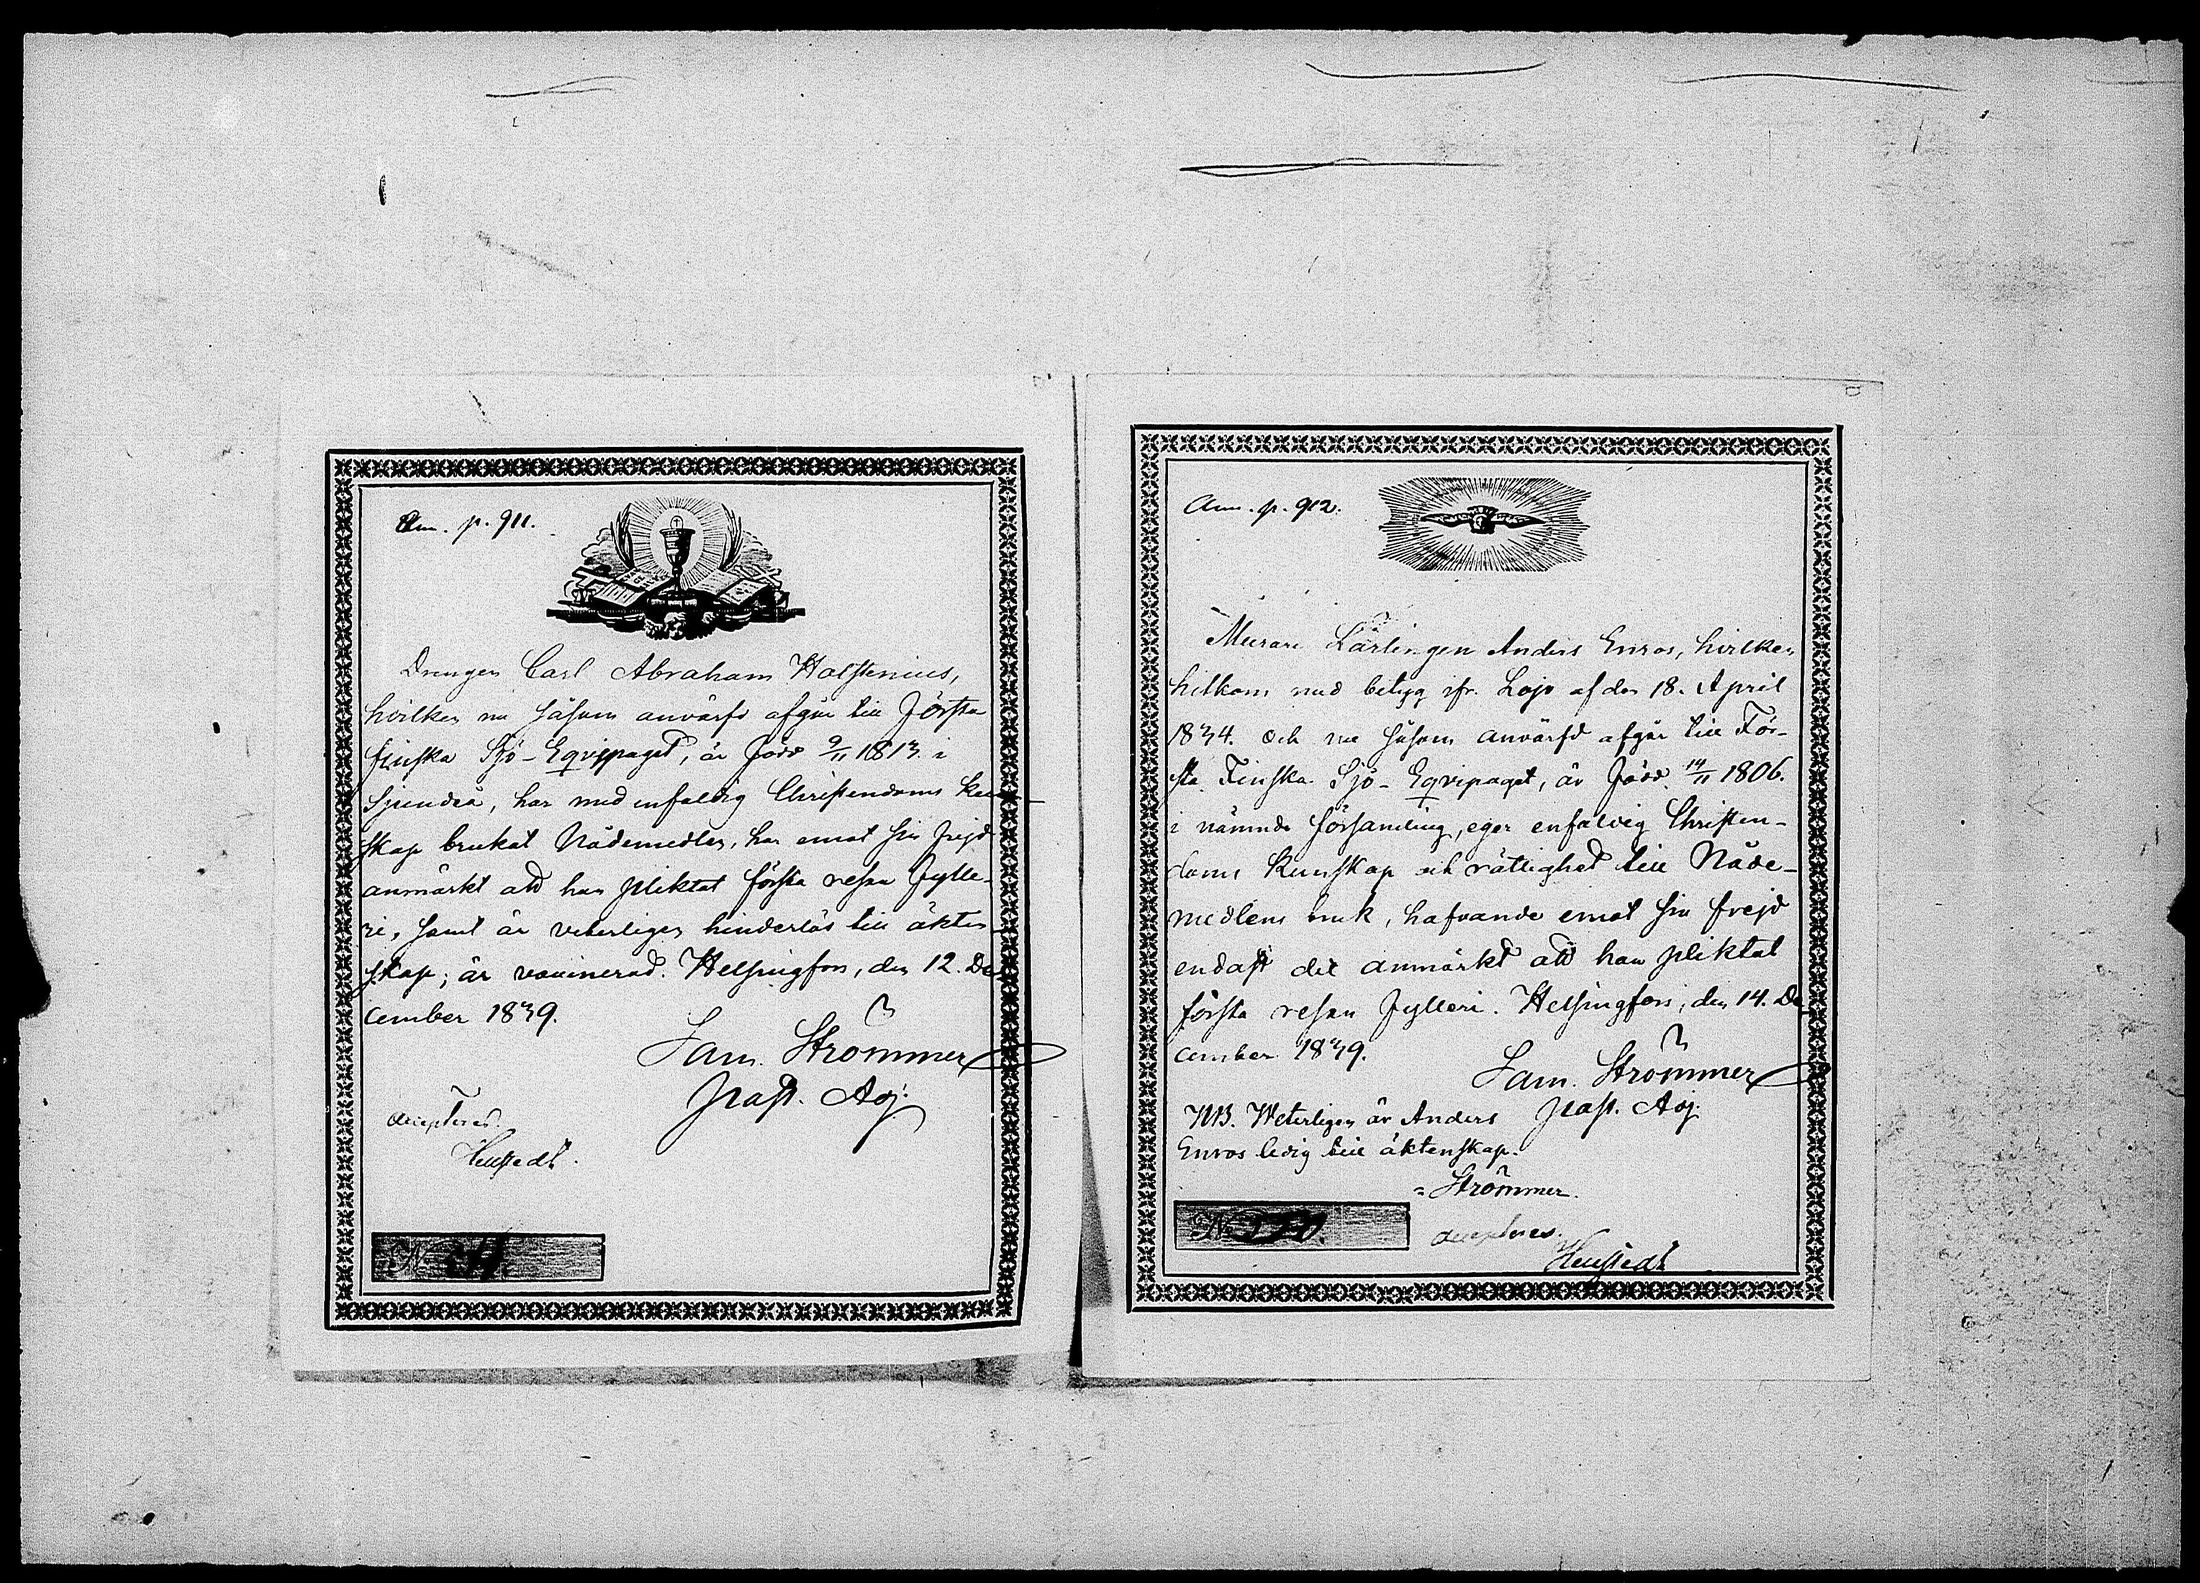 Ann. p. 911.
Drengen Carl Abraham Halstenius,
hvilken nu såsom anvärfd afgår till Första
finska Sjö-Eqvipaget, är född 9/11 1813. i
Sjundeå, har med enfaldig Christendoms kun-
skap brukat Nådemedlen, har emot sin frejd
anmärkt att han pliktat första resan fylle-
ri, samt är veterligen hinderlös till äkten-
skap; är vaccinerad. Helsingfors, den 12. De-
cember 1839.
Sam. Strömmer
Past. Adj.
accepteras.
No
Ann. p. 912.
Murare Lärlingen Anders Enros, hvilken
hitkom med betyg ifr. Lojo af den 18. April
1834. och nu såsom anvärfd afgår till För-
sta Finska Sjö-Eqvipaget, är född 14/11 1806.
i nämnde församling, eger enfaldig Christen-
doms Kunskap och rättighet till Nåde-
medlens bruk, hafvande emot sin frejd
endast det anmärkt att han pliktat
första resan fylleri. Helsingfors, den 14. De-
cember 1839.
Sam. Strömmer
Past. Adj.
NB. Veterligen är Anders
Enros ledig till äktenskap.
Strömmer.
No
accepteras.